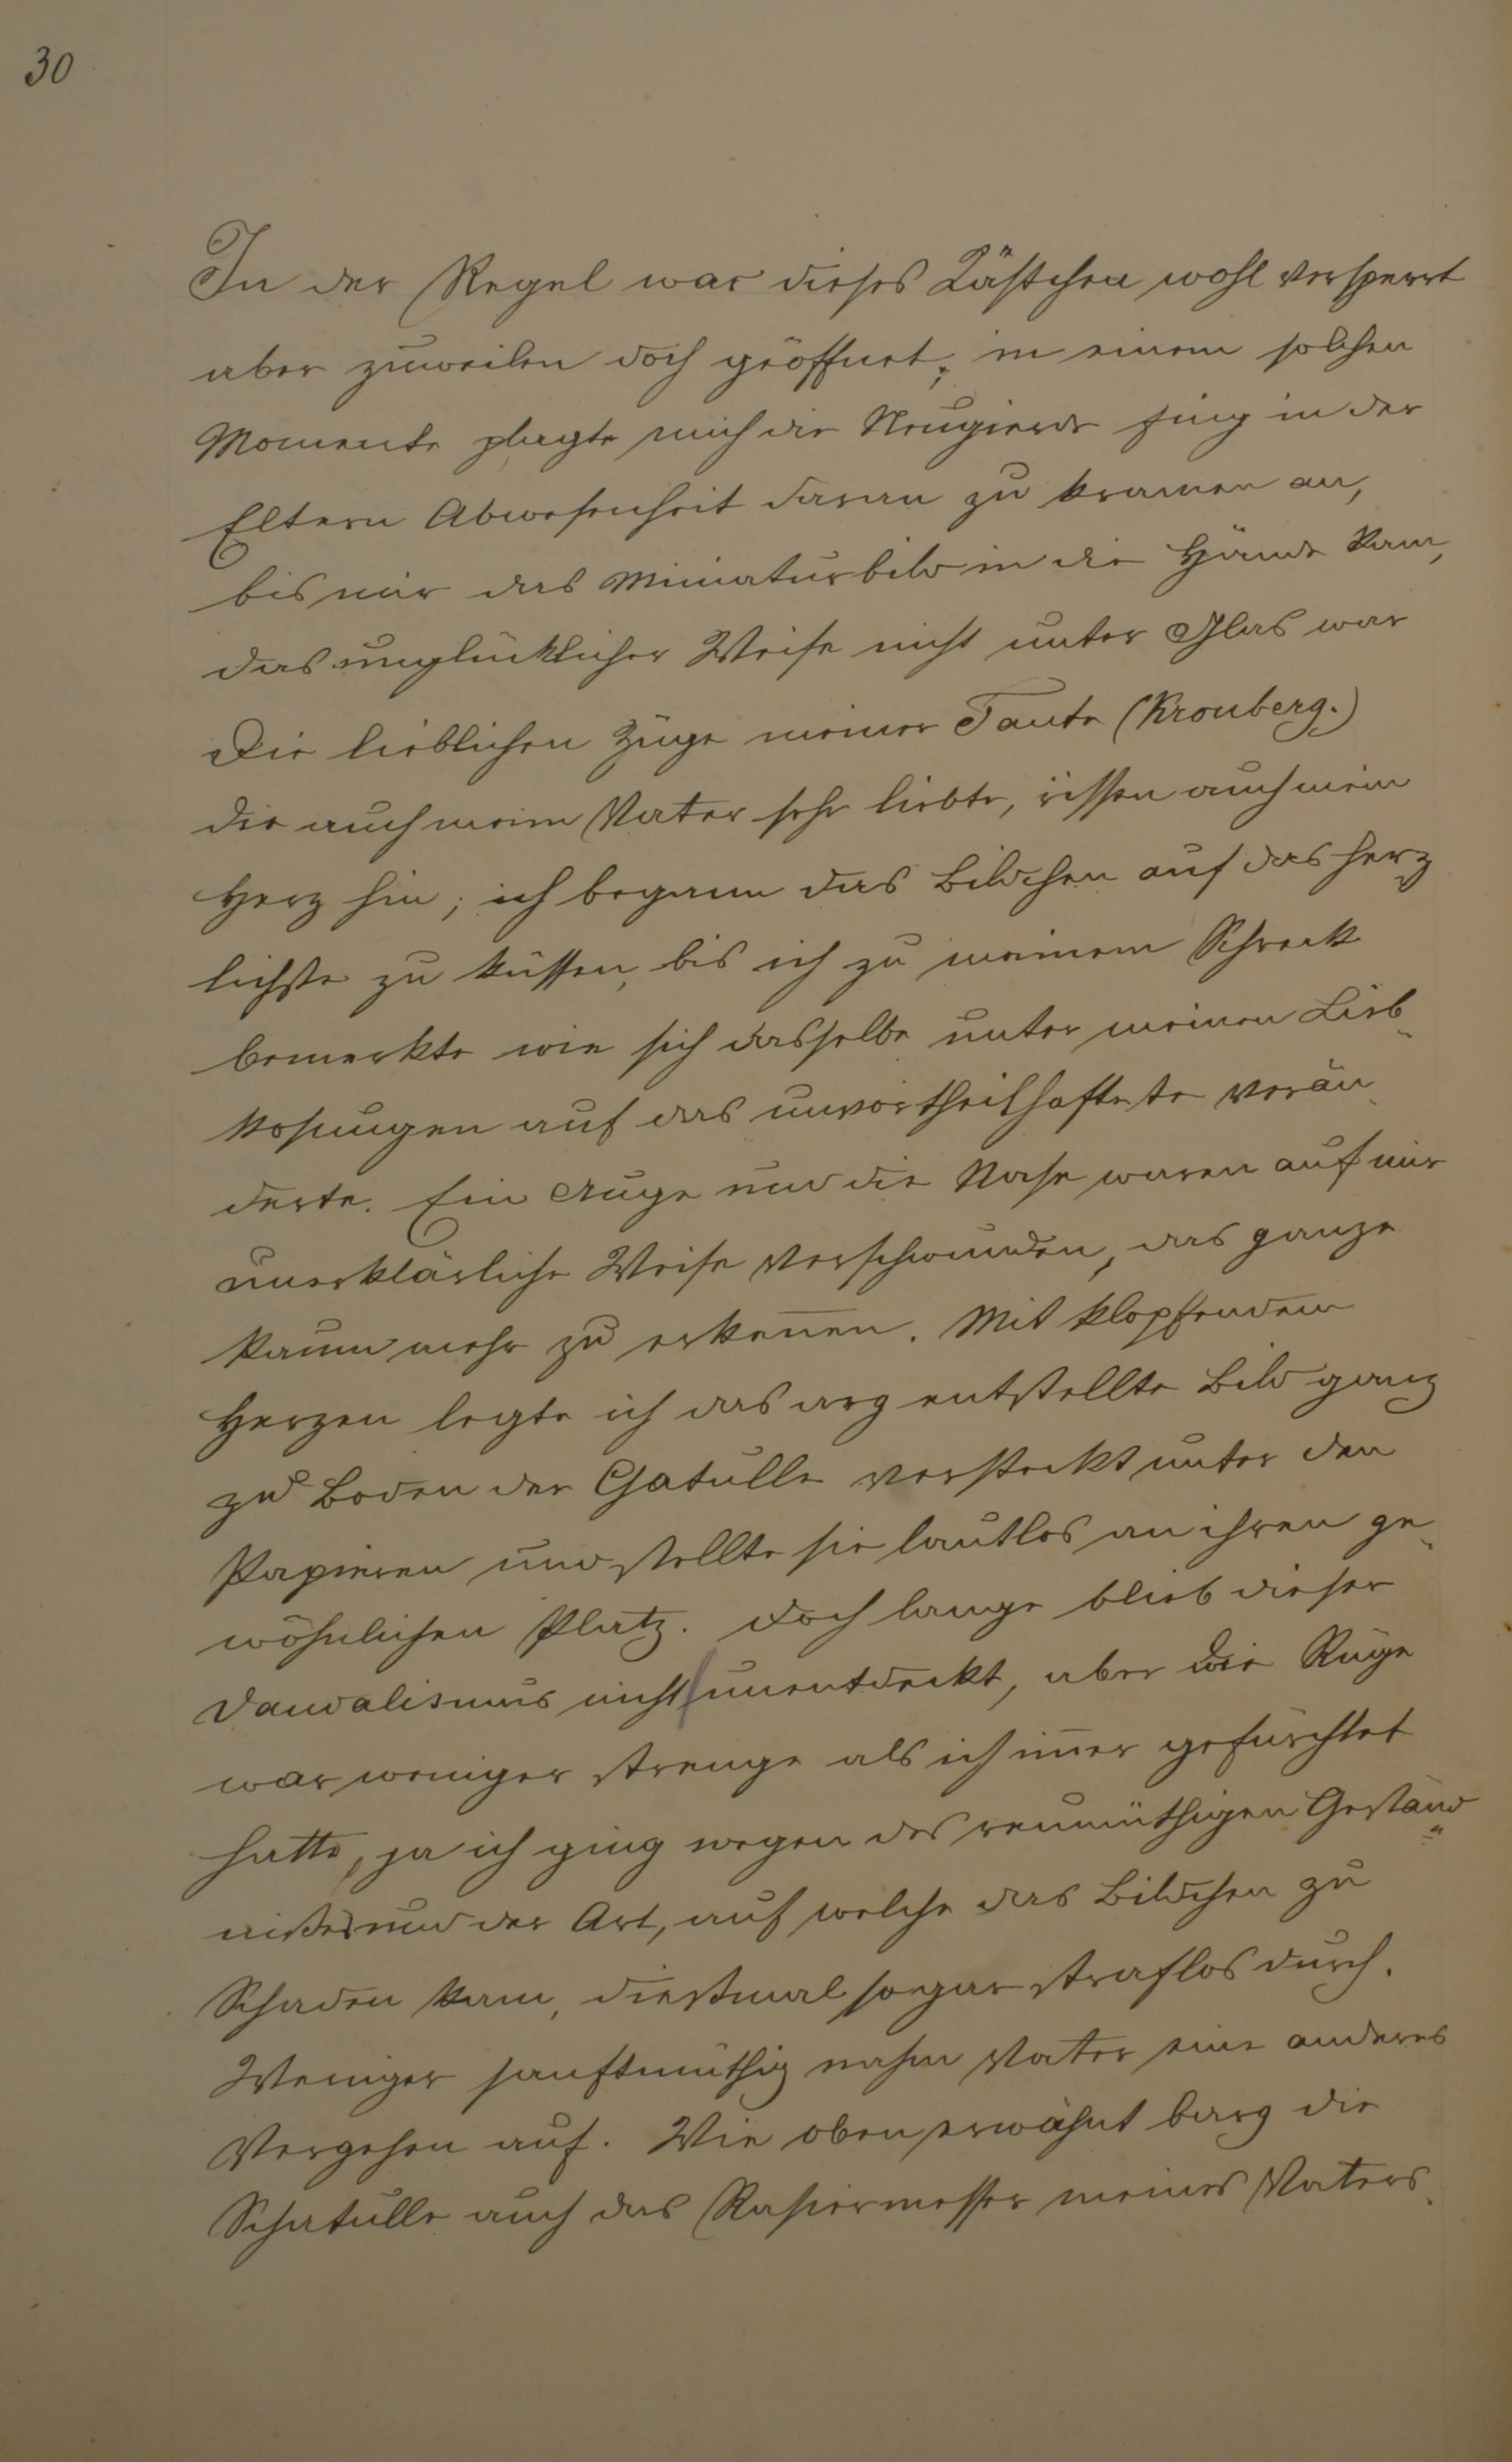 30
In der Regel war dieses Kästchen wohl versperrt
aber zuweilen doch geöffnet; in einem solchen
Momente plagte mich die Neugierde fing in der
Eltern Abwesenheit daran zu kramen an,
bis mir das Miniaturbild in die Hände kam,
das unglücklicher Weise nicht unter Glas war
Die lieblichen Züge meiner Tante (Kronberg.)
die auch mein Vater sehr liebte, rissen auch mein
Herz hin; ich begann das Bildchen auf das herz-
lichste zu küssen, bis ich zu meinem Schreck
bemerkte wie sich dasselbe unter meinen Lieb-
kosungen auf das unvortheilhafteste verän-
derte. Ein Auge und die Nase waren auf mir
unerklärliche Weise verschwunden, das ganze
kaum mehr zu erkeñen. Mit klopfendem
Herzen legte ich das arg entstellte Bild ganz
zu Boden der Chatulle versteckt unter den
Papieren und stellte sie lautlos an ihren ge-
wöhnlichen Platz. Doch lange blieb dieser
Vandalismus nicht unentdeckt, aber die Rüge
war weniger strenge als ich im̄er gefürchtet
hatte, ja ich ging wegen des reumüthigen Geständ-
nißes und der Art, auf welche das Bildchen zu
Schaden kam, diesmal sogar straflos durch.
Weniger sanftmüthig nahm Vater eine anderes
Vergehen auf. Wie oben erwähnt barg die
Schatulle auch das Rasiermesser meines Vaters.